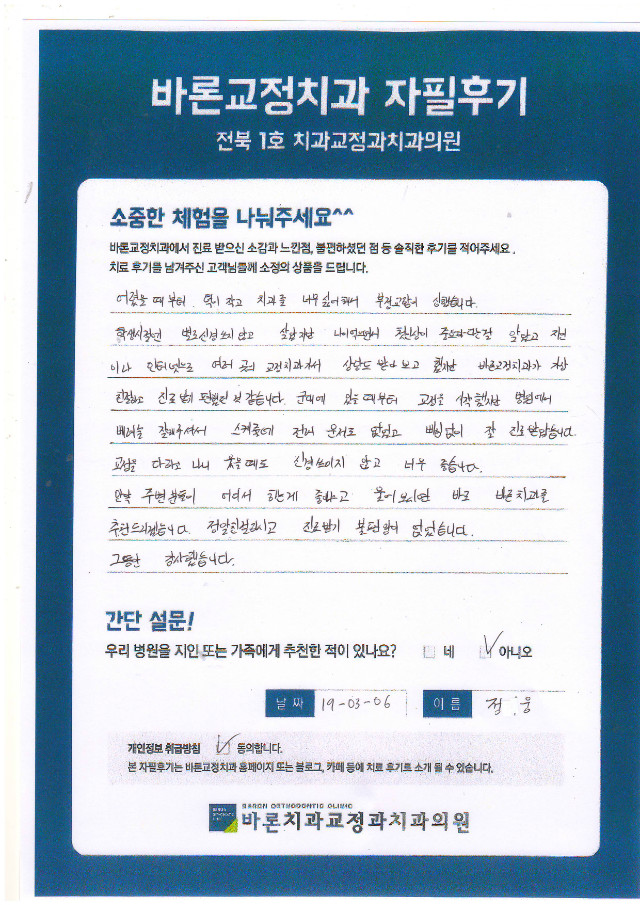 바론교정치과 자필후기
전북 1호 치과교정과치과의원
소중한 체험을 나눠주세요^^
바론교정치과에서 진료 받으신 소감과 느낀점, 불편하셨던 점 등 솔직한 후기를 적어주세요.
치료 후기를 남겨주신 고객님들께 소정의 상품을 드립니다.
어렸을 때부터 턱이 작고 치과를 너무 싫어해서 부정교합이 심했습니다.
학생시절엔 별로 신경쓰지 않고 살았지만 나이먹으면서 첫인상이 중요하다는걸 알았고 지인
이나 인터넷으로 여러 곳의 교정치과가서 상담도 받아보고 했지만 바론교정치과가 가장
친절하고 진료 받기 편했던 것 같습니다. 군대에 있을 때부터 교정을 시작했지만 병원에서
배려를 잘해주셔서 스케쥴에 전혀 문제도 없었고 빠짐없이 잘 진료 받았습니다.
교정을 다하고 나니 웃을때도 신경쓰이지 않고 너무 좋습니다.
만약 주변 분들이 어디서 하는게 좋냐고 물어보시면 바로 바론치과를
추천드리겠습니다. 정말 친절하시고 진료받기 불편함이 없었습니다.
그동안 감사했습니다.
간단 설문!
우리 병원을 지인 또는 가족에게 추천한 적이 있나요? 네 아니오
날짜 19-03-06 이름 웅
개인정보 취급방침 동의합니다.
본 자필후기는 바론교정치과 홈페이지 또는 블로그, 카페 등에 치료 후기로 소개 될 수 있습니다.
BARON ORTHODONTIC CLINIC
바론치과교정과치과의원